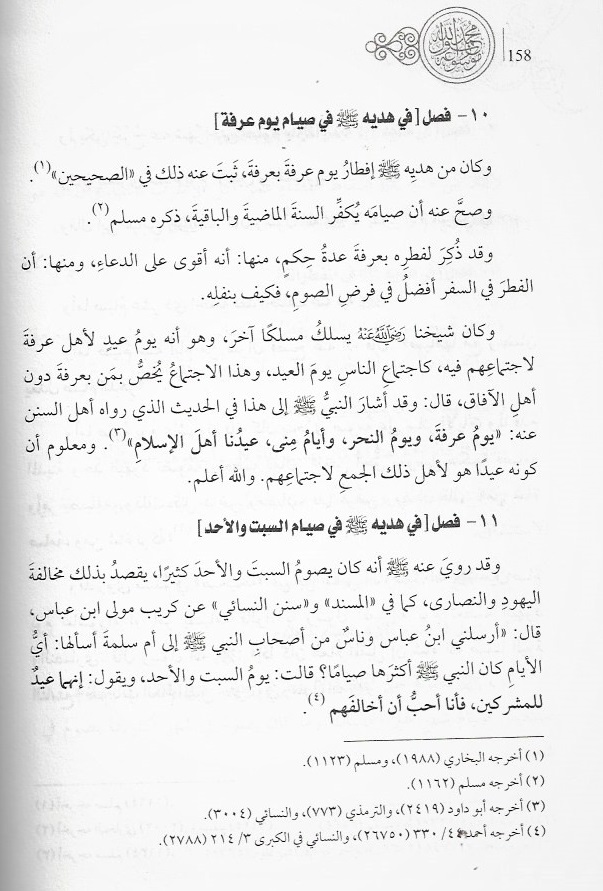 158
١٠- فصل [في هديه ﷺ في صيام يوم عرفة]
وكان من هديِه ﷺ إفطارُ يوم عرفةَ بعرفةَ، ثَبتَ عنه ذلك في «الصحيحين»(١).
وصحَّ عنه أن صيامَه يُكفِّر السنةَ الماضيةَ والباقيةَ، ذكره مسلم(٢).
وقد ذُكِرَ لفطرِه بعرفةَ عدةُ حِكمٍ، منها: أنه أقوى على الدعاءِ، ومنها: أن
الفطرَ في السفر أفضلُ في فرضِ الصومِ، فكيف بنفلِه.
وكان شيخنا رَضِيَاللَّهُعَنْهُ يسلكُ مسلكًا آخرَ، وهو أنه يومُ عيدٍ لأهل عرفةَ
لاجتماعِهم فيه، كاجتماعِ الناسِ يومَ العيد، وهذا الاجتماعُ يُخصُّ بمَن بعرفةَ دون
أهلِ الآفاق، قال: وقد أشارَ النبيُّ ﷺ إلى هذا في الحديث الذي رواه أهل السنن
عنه: «يومُ عرفةَ، ويومُ النحر، وأيامُ مِنى، عيدُنا أهلَ الإسلامِ»(٣). ومعلوم أن
كونه عيدًا هو لأهل ذلك الجمعِ لاجتماعِهم. والله أعلم.
١١- فصل [في هديه ﷺ في صيام السبت والأحد]
وقد رويَ عنه ﷺ أنه كان يصومُ السبتَ والأحدَ كثيرًا، يقصدُ بذلك مخالفةَ
اليهودِ والنصارى، كما في «المسند» و«سنن النسائي» عن كريب مولى ابن عباس،
قال: «أرسلني ابنُ عباس وناسٌ من أصحابِ النبي ﷺ إلى أم سلمةَ أسألها: أيُّ
الأيامِ كان النبي ﷺ أكثرَها صيامًا؟ قالت: يومُ السبت والأحد، ويقول: إنهما عيدٌ
للمشركين، فأنا أحبُّ أن أخالفَهم(٤).
(١) أخرجه البخاري (١٩٨٨)، ومسلم (١١٢٣).
(٢) أخرجه مسلم (١١٦٢).
(٣) أخرجه أبو داود (٢٤١٩)، والترمذي (٧٧٣)، والنسائي (٣٠٠٤).
(٤) أخرجه أحمد ٤٤/ ٣٣٠ (٢٦٧٥٠)، والنسائي في الكبرى ٣/ ٢١٤ (٢٧٨٨).